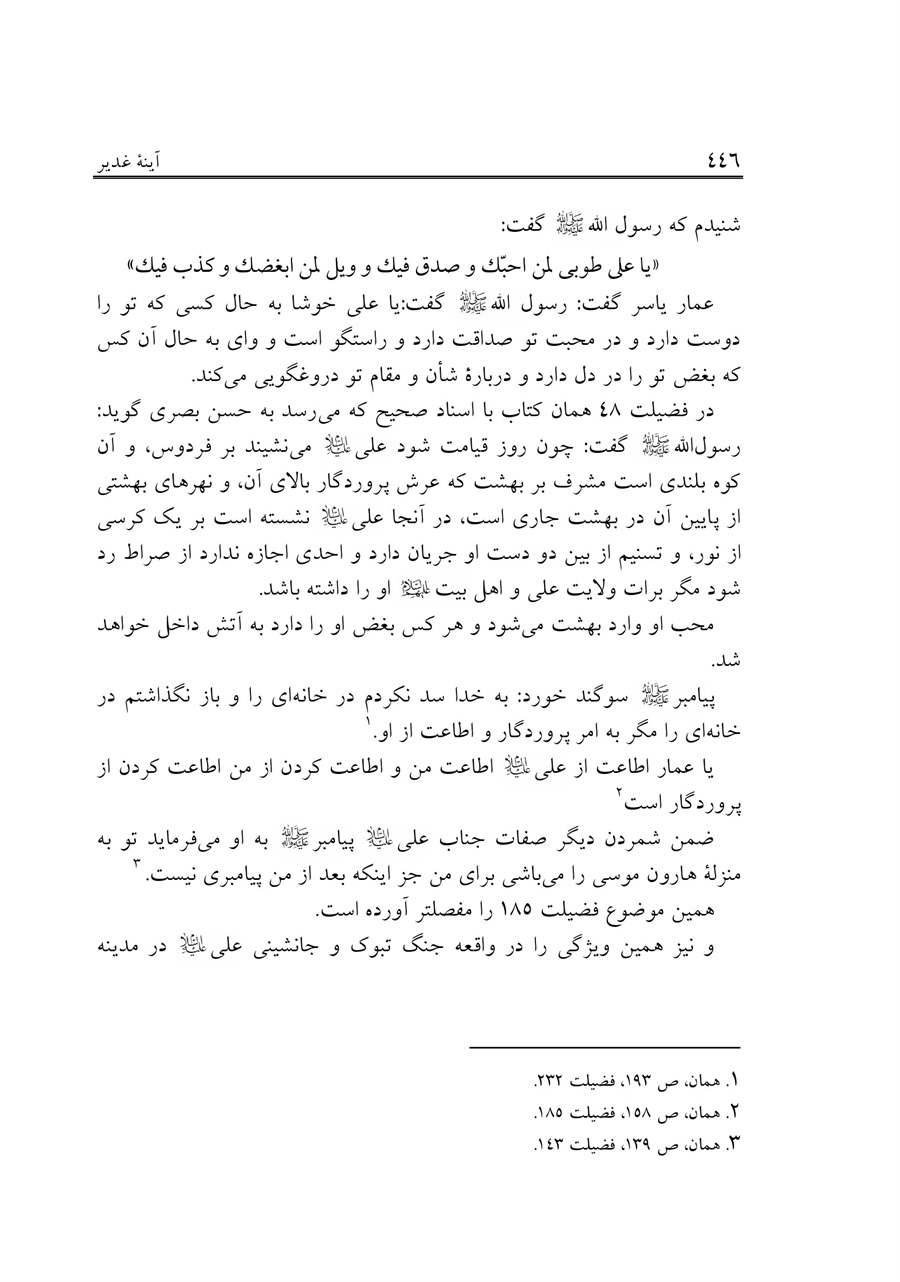 ٤٤٦ آینهٔ غدیر
شنیدم که رسول الله ﷺ گفت:
«یا علی طوبی لمن احبّك و صدق فیك و ویل لمن ابغضك و کذب فیك»
عمار یاسر گفت: رسول الله ﷺ گفت:یا علی خوشا به حال کسی که تو را
دوست دارد و در محبت تو صداقت دارد و راستگو است و وای به حال آن کس
که بغض تو را در دل دارد و دربارهٔ شأن و مقام تو دروغگویی می‌کند.
در فضیلت ٤٨ همان کتاب با اسناد صحیح که می‌رسد به حسن بصری گوید:
رسول‌الله ﷺ گفت: چون روز قیامت شود علی علیه‌السلام می‌نشیند بر فردوس، و آن
کوه بلندی است مشرف بر بهشت که عرش پروردگار بالای آن، و نهرهای بهشتی
از پایین آن در بهشت جاری است، در آنجا علی علیه‌السلام نشسته است بر یک کرسی
از نور، و تسنیم از بین دو دست او جریان دارد و احدی اجازه ندارد از صراط رد
شود مگر برات ولایت علی و اهل بیت علیهم‌السلام او را داشته باشد.
محب او وارد بهشت می‌شود و هر کس بغض او را دارد به آتش داخل خواهد
شد.
پیامبر ﷺ سوگند خورد: به خدا سد نکردم در خانه‌ای را و باز نگذاشتم در
خانه‌ای را مگر به امر پروردگار و اطاعت از او.۱
یا عمار اطاعت از علی علیه‌السلام اطاعت من و اطاعت کردن از من اطاعت کردن از
پروردگار است۲
ضمن شمردن دیگر صفات جناب علی علیه‌السلام پیامبر ﷺ به او می‌فرماید تو به
منزلهٔ هارون موسی را می‌باشی برای من جز اینکه بعد از من پیامبری نیست.۳
همین موضوع فضیلت ١٨٥ را مفصلتر آورده است.
و نیز همین ویژگی را در واقعه جنگ تبوک و جانشینی علی علیه‌السلام در مدینه
١. همان، ص ١٩٣، فضیلت ٢٣٢.
٢. همان، ص ١٥٨، فضیلت ١٨٥.
٣. همان، ص ١٣٩، فضیلت ١٤٣.